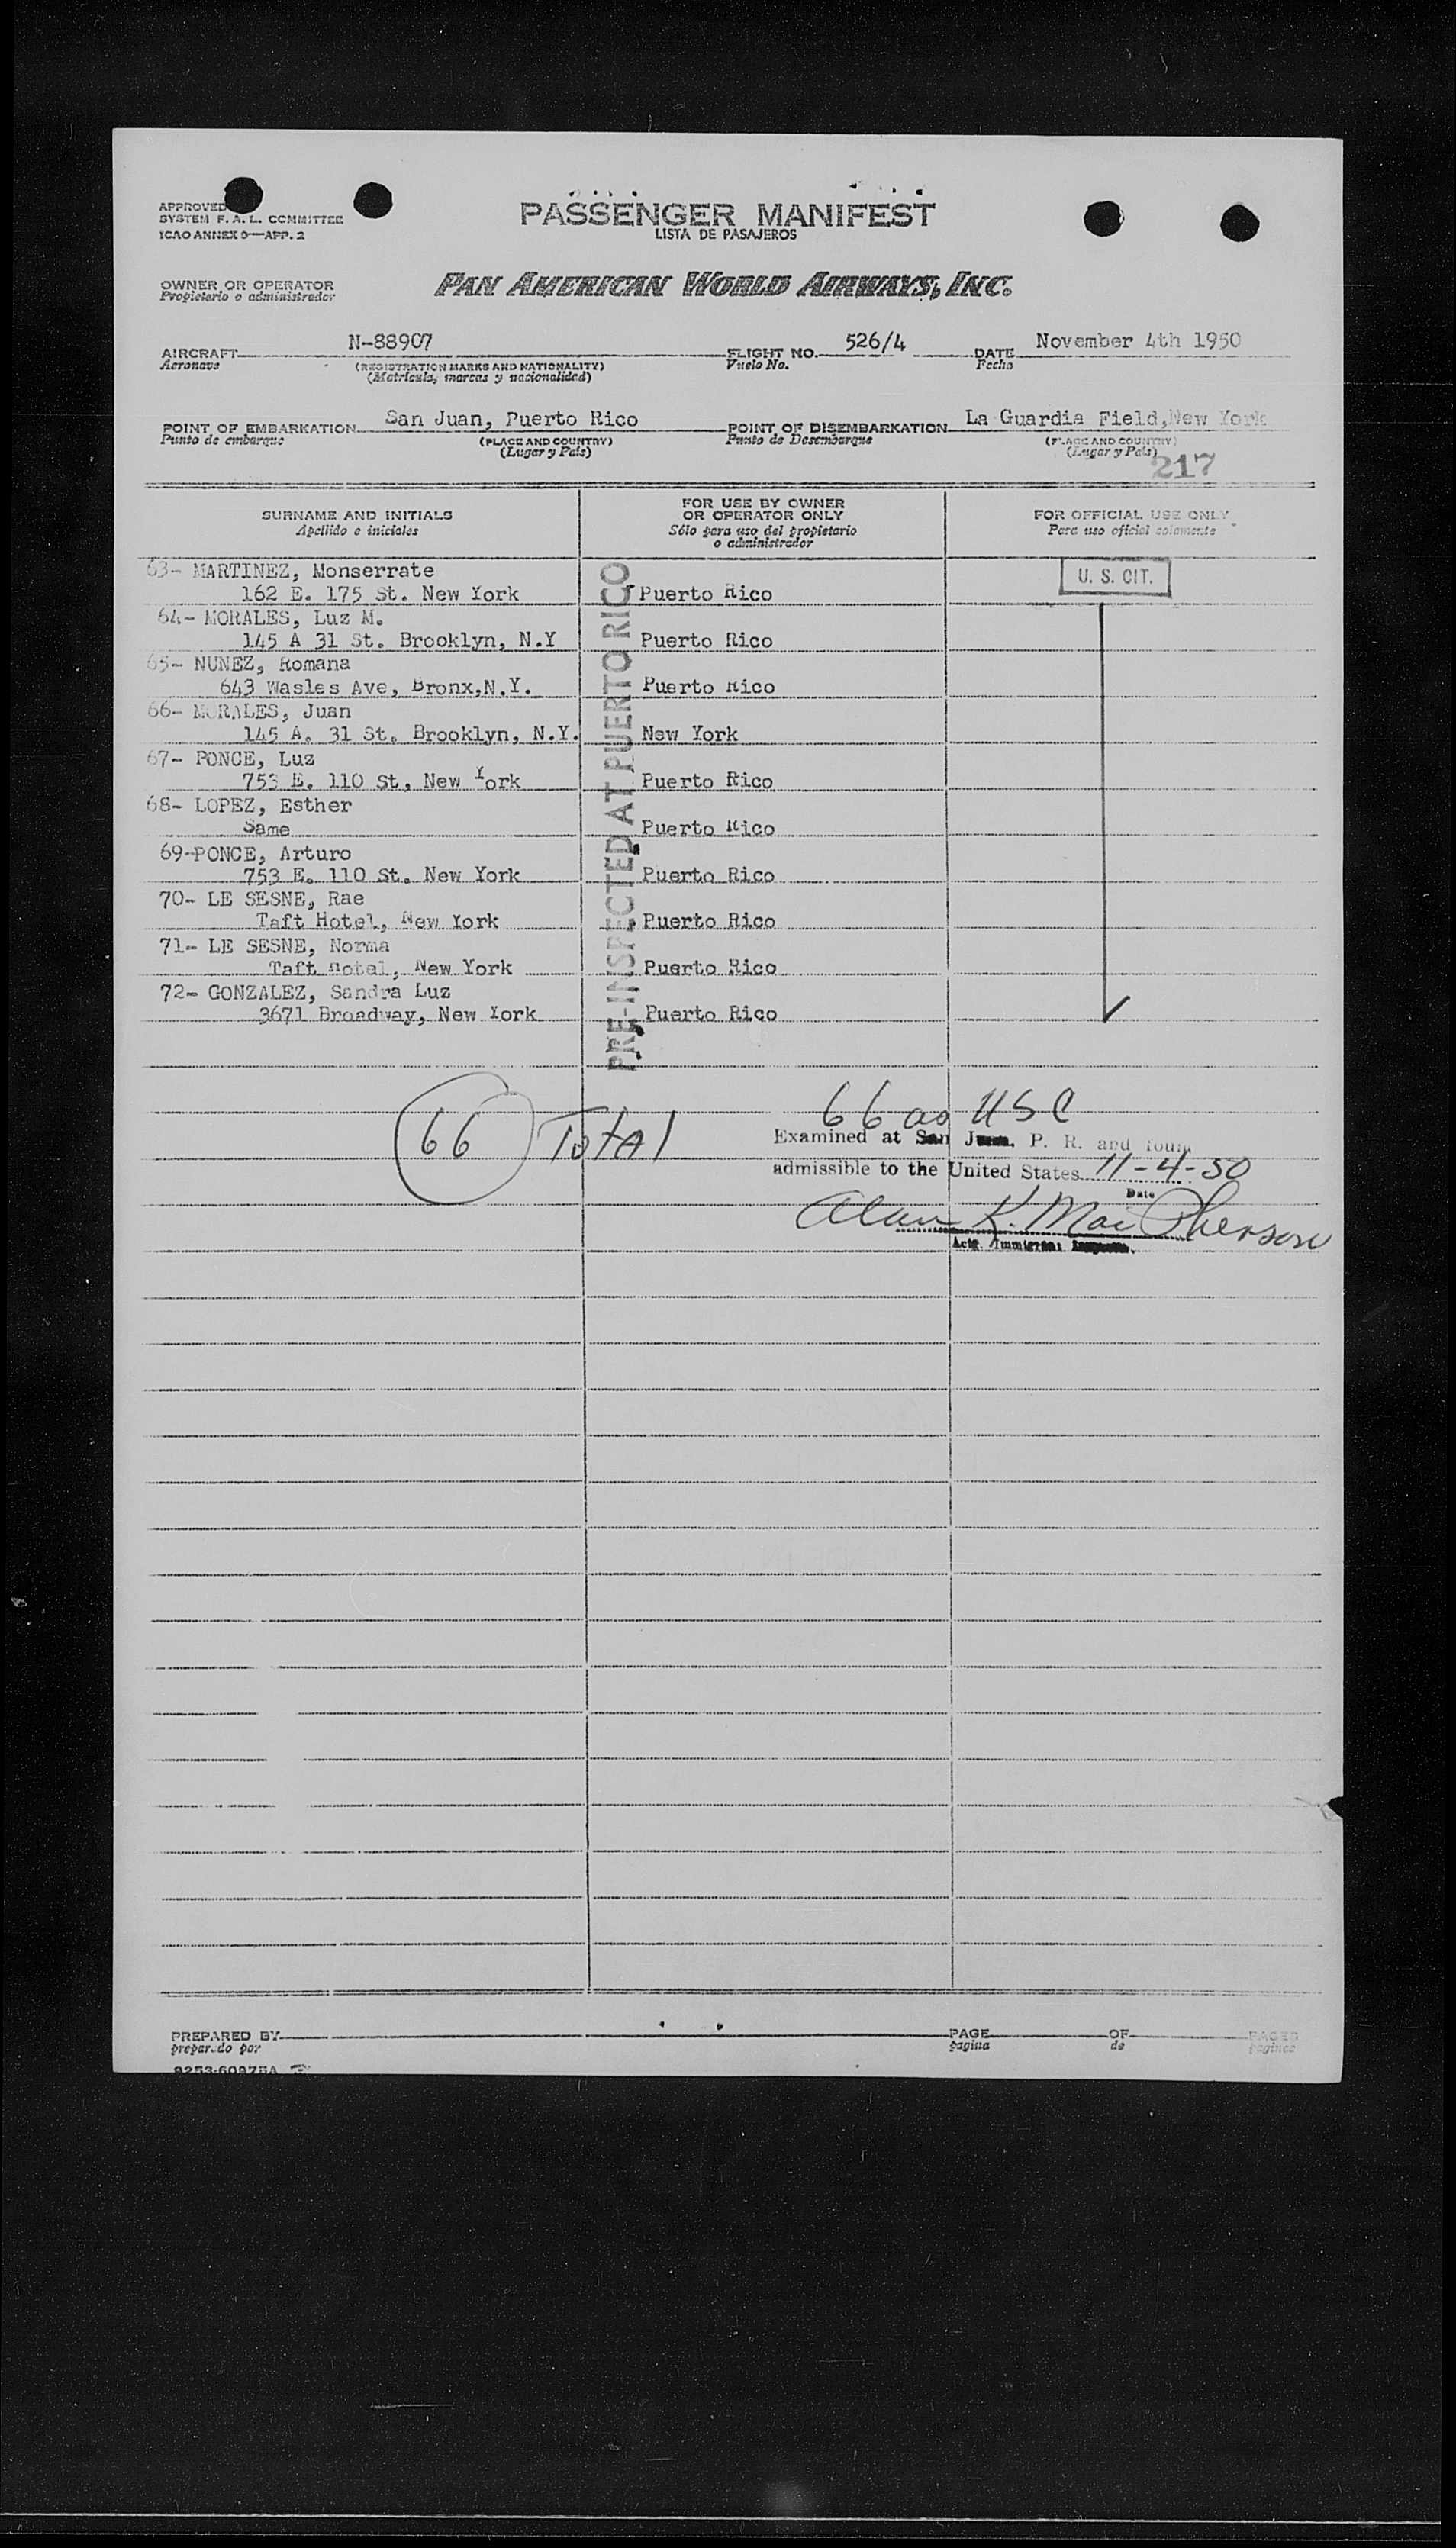 APPROVED
SYSTEM F. A. L. COMMITTEE
ICAO ANNEX 9—APP. 2
PASSENGER MANIFEST
LISTA DE PASAJEROS
OWNER OR OPERATOR
Propietario o administrador
PAN AMERICAN WORLD AIRWAYS, INC.
AIRCRAFT N-88907 FLIGHT NO. 526/4 DATE November 4th 1950
Aeronave (REGISTRATION MARKS AND NATIONALITY) Vuelo No. Fecha
(Matrícula, marcas y nacionalidad)
POINT OF EMBARKATION San Juan, Puerto Rico POINT OF DISEMBARKATION La Guardia Field, New York
Punto de embarque (PLACE AND COUNTRY) Punto de Desembarque (PLACE AND COUNTRY)
(Lugar y País) (Lugar y País)
217
SURNAME AND INITIALS
Apellido e iniciales
FOR USE BY OWNER
OR OPERATOR ONLY
Sólo para uso del propietario
o administrador
FOR OFFICIAL USE ONLY
Para uso oficial solamente
PRE-INSPECTED AT PUERTO RICO
U. S. CIT.
63- MARTINEZ, Monserrate
162 E. 175 St. New York Puerto Rico
64- MORALES, Luz M.
145 A 31 St. Brooklyn, N.Y Puerto Rico
65- NUNEZ, Romana
643 Wasles Ave, Bronx,N.Y. Puerto Rico
66- MORALES, Juan
145 A. 31 St. Brooklyn, N.Y. New York
67- PONCE, Luz
753 E. 110 St, New York Puerto Rico
68- LOPEZ, Esther
Same Puerto Rico
69-PONCE, Arturo
753 E. 110 St. New York Puerto Rico
70- LE SESNE, Rae
Taft Hotel, New York Puerto Rico
71- LE SESNE, Norma
Taft Hotel, New York Puerto Rico
72- GONZALEZ, Sandra Luz
3671 Broadway, New York Puerto Rico
66 Total
66 as USC
Examined at San Juan, P. R. and found
admissible to the United States 11-4-50
Date
Alan K. MacPherson
Actg. Immigrant Inspector.
PREPARED BY PAGE OF PAGES
preparado por página de páginas